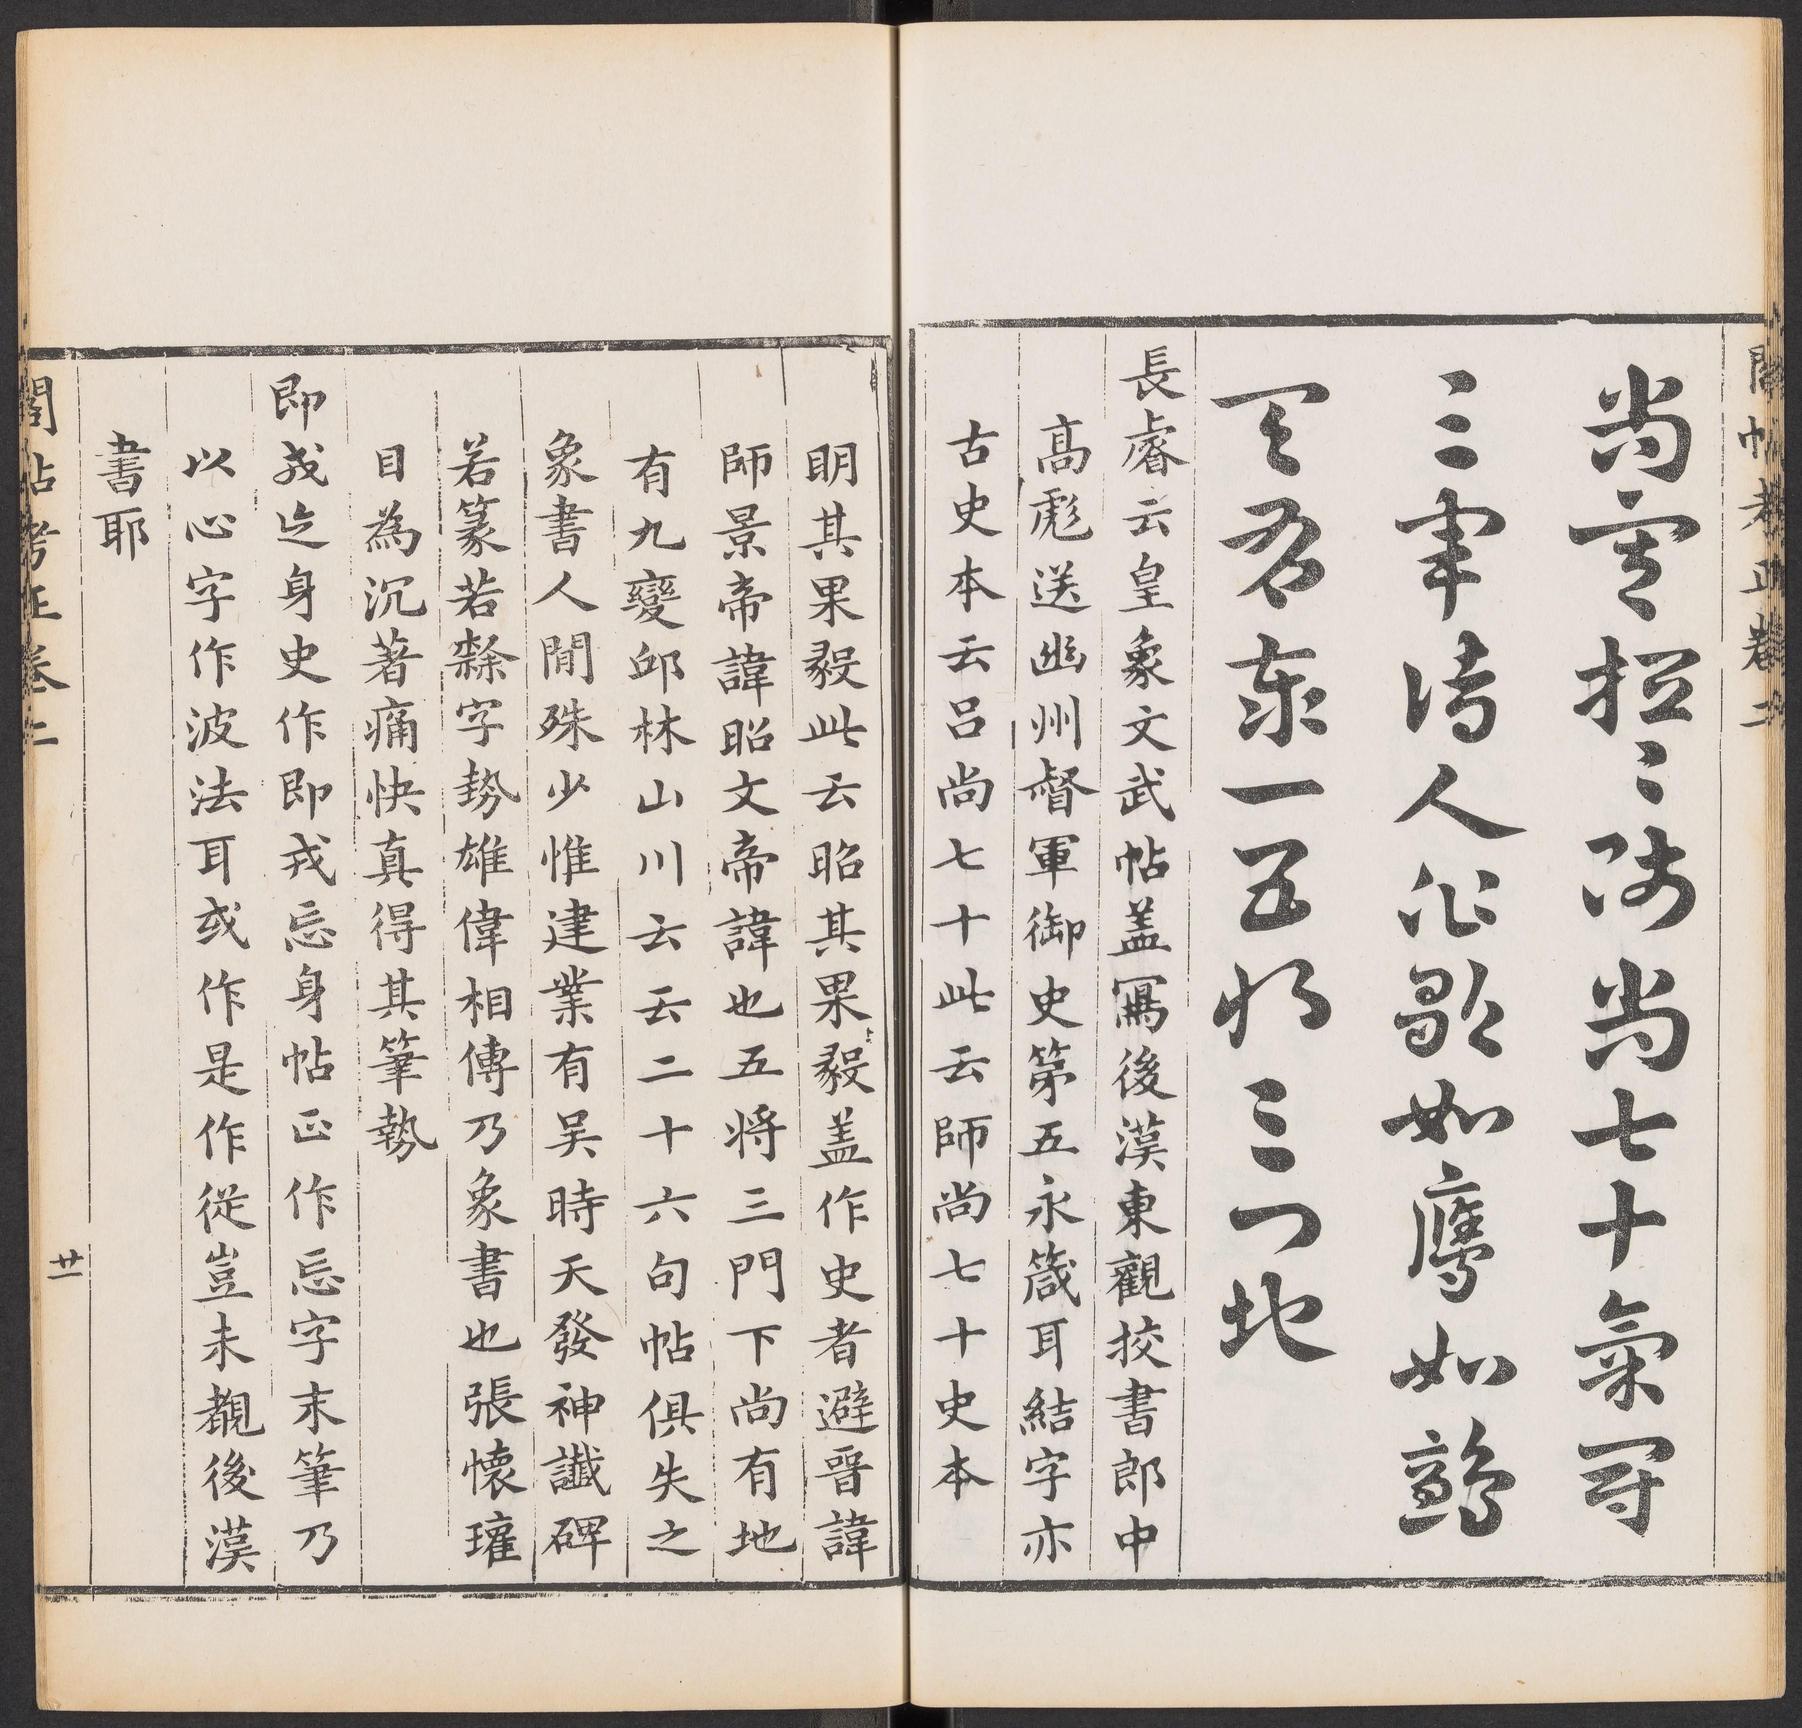 閣帖考正卷二
尚 桓 : 尚七十氣冠
三軍 人 歇如鷹如鷂
天 一 五將三門地
長睿云皇象文武帖蓋寫後漢東觀挍書郎中
高彪送幽州督軍御史第五永箴耳結字亦
古史本云呂尚七十此云師尚七十史本
明其果毅此云昭其果毅蓋作史者避晉諱
師景帝諱昭文帝諱也五將三門下尚有地
有九變邱林山川云云二十六句帖俱失之
象書人間殊少惟建業有吳時天發神讖碑
若篆若隸字勢雄偉相傳乃象書也張懷瓘
目為沉著痛快真得其筆勢
即戎忘身史作即戎忘身帖正作忘字末筆乃
以心字作波法耳或作是作從豈未覩後漢
書耶
閣帖考正卷二
廿一